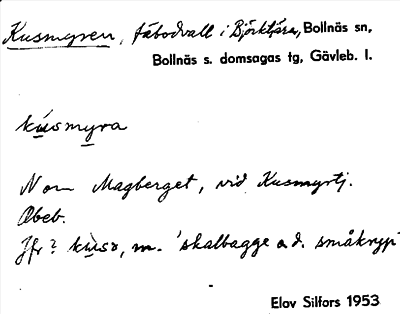 Kusmyren, fäbodvall i Björktjära, Bollnäs sn,
Bollnäs s. domsagas tg, Gävleb. l.
kusmyra
N om Magberget, vid Kusmyrtj.
Obeb.
Jfr? kuse, m. 'skalbagge o.d. småkryp'
Elov Silfors 1953